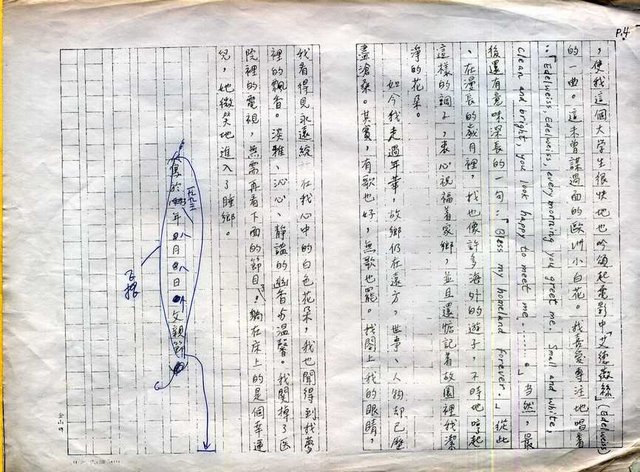 P.4
，使我這個大學生很快地也吟頌起電影中「艾德薇絲」(Edelweiss)
的一曲。這未曾謀過面的歐洲小白花。我喜愛專注地唱着
：「Edelweiss, Edelweiss, every morning you greet me. Small and white,
clean and bright, you look happy to meet me......。」當然，最
後還有意味深長的一句：「Bless my homeland forever.」從此
，在漫長的歲月裡，我也像許多海外的遊子，不時地哼起
這樣的調子，衷心祝福着家鄉，並且還惦記着故園裡我潔
淨的花朵。
如今我走過年華，故鄉仍在遠方，世事、人物卻已歷
盡滄桑。其實，有歌也好，無歌也罷。我閤上我的眼睛，
我看得見永遠綻放在我心中的白色花朵，我也聞得到我夢
裡的飄香。淡雅、沁心、靜謐的幽香与溫馨。我関掉了医
院裡的電視，無需再看下面的節目，躺在床上的是個幸運
兒，她微笑地進入了睡鄉。
寫於 年八月八日 父親節
一九九三